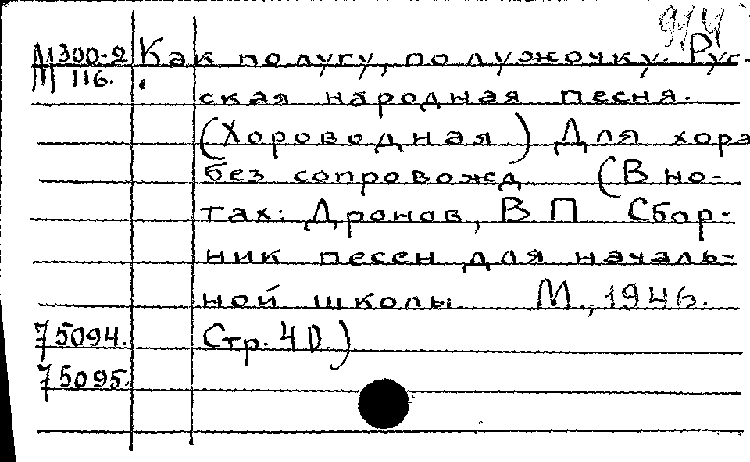 914
М300-2 Как по лугу, по лужочку. Рус-
М116. ская народная песня.
(Хороводная) Для хора
без сопровожд (В но-
тах: Дронов, В П Сбор-
ник песен для началь-
ной школы М., 1946.
75094. Стр. 40)
75095.